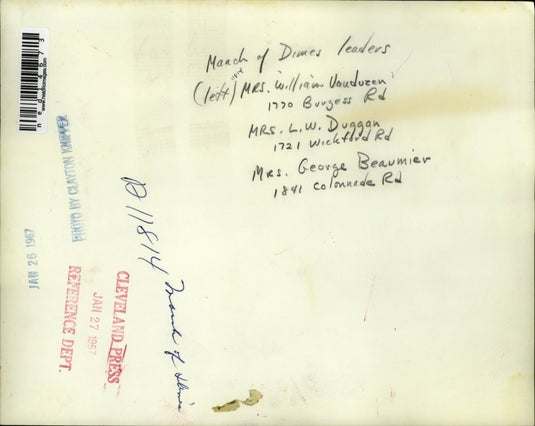 March of Dimes leaders
(left) Mrs. William Vanduzen
1770 Burgess Rd
MRS. L.W. Duggan
1721 Wickford Rd
Mrs. George Beaumier
1841 Colonnade Rd
D 11814 March of Dimes
PHOTO BY CLAYTON KNIPPER
JAN 26 1967
CLEVELAND PRESS
JAN 27 1967
REFERENCE DEPT.